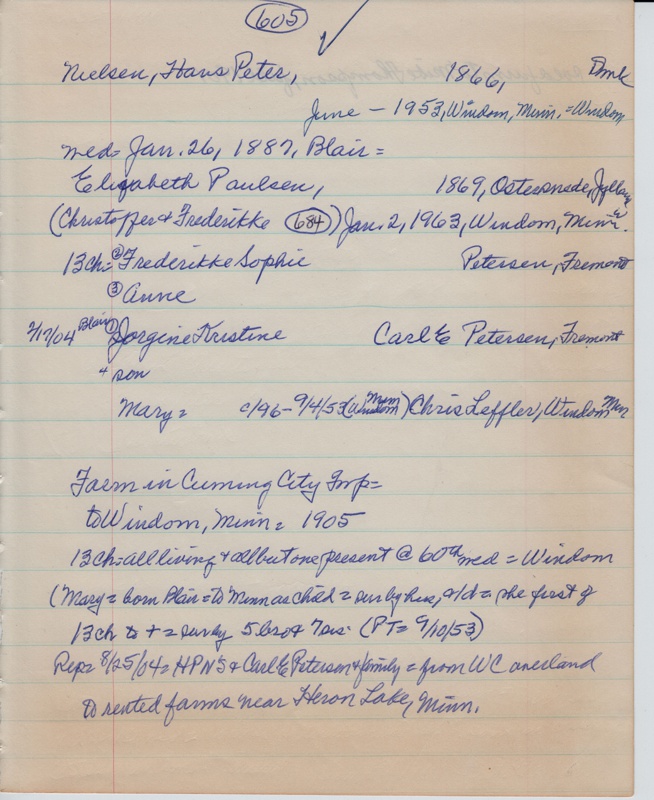 605 ✓
Nielsen, Hans Peter, 1866, Dmk
June - 1953, Windom, Minn. = Windom
med = Jan. 26, 1887, Blair =
Elizabeth Paulsen, 1869,
(Christoffer + Frederikke 684) Jan. 2, 1963, Windom, Minn.
13ch = ② Frederikke Sophie Petersen, Fremont
③ Anne
2/17/04 Blair ① Jorgine Kristine Carl E Petersen, Fremont
4 son
Mary = c/96 - 9/4/53 (Windom Minn) Chris Leffler, Windom Mn
Farm in Cuming City Twp =
to Windom, Minn = 1905
13ch = all living + all but one present @ 60th med = Windom
(Mary = born Blair = to Minn as child = sur by hus, + 1d = she first of
13ch to + = sur by 5 bro + 7 sis (PT = 9/10/53)
Rep = 8/25/04 = HPN's + Carl E Petersen + family = from WC
to rented farms near Heron Lake, Minn.